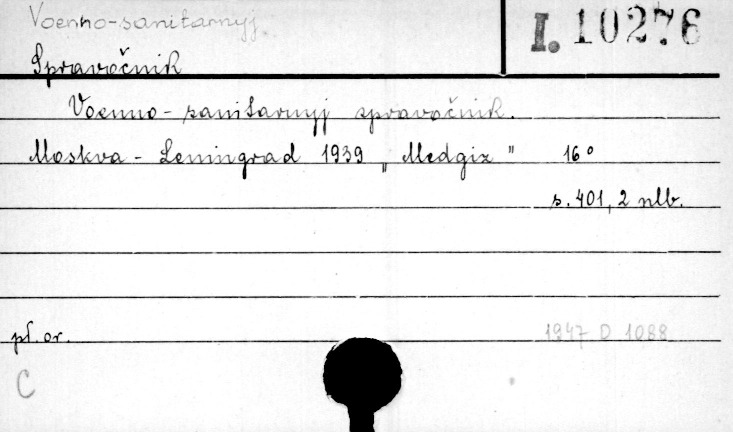 Voenno-sanitarnyj
I. 10276
Spravočnik
Voenno-sanitarnyj spravočnik.
Moskva - Leningrad 1939 „Medgiz" 16°
s. 401, 2 nlb.
př. or. 1947 D 1088
C